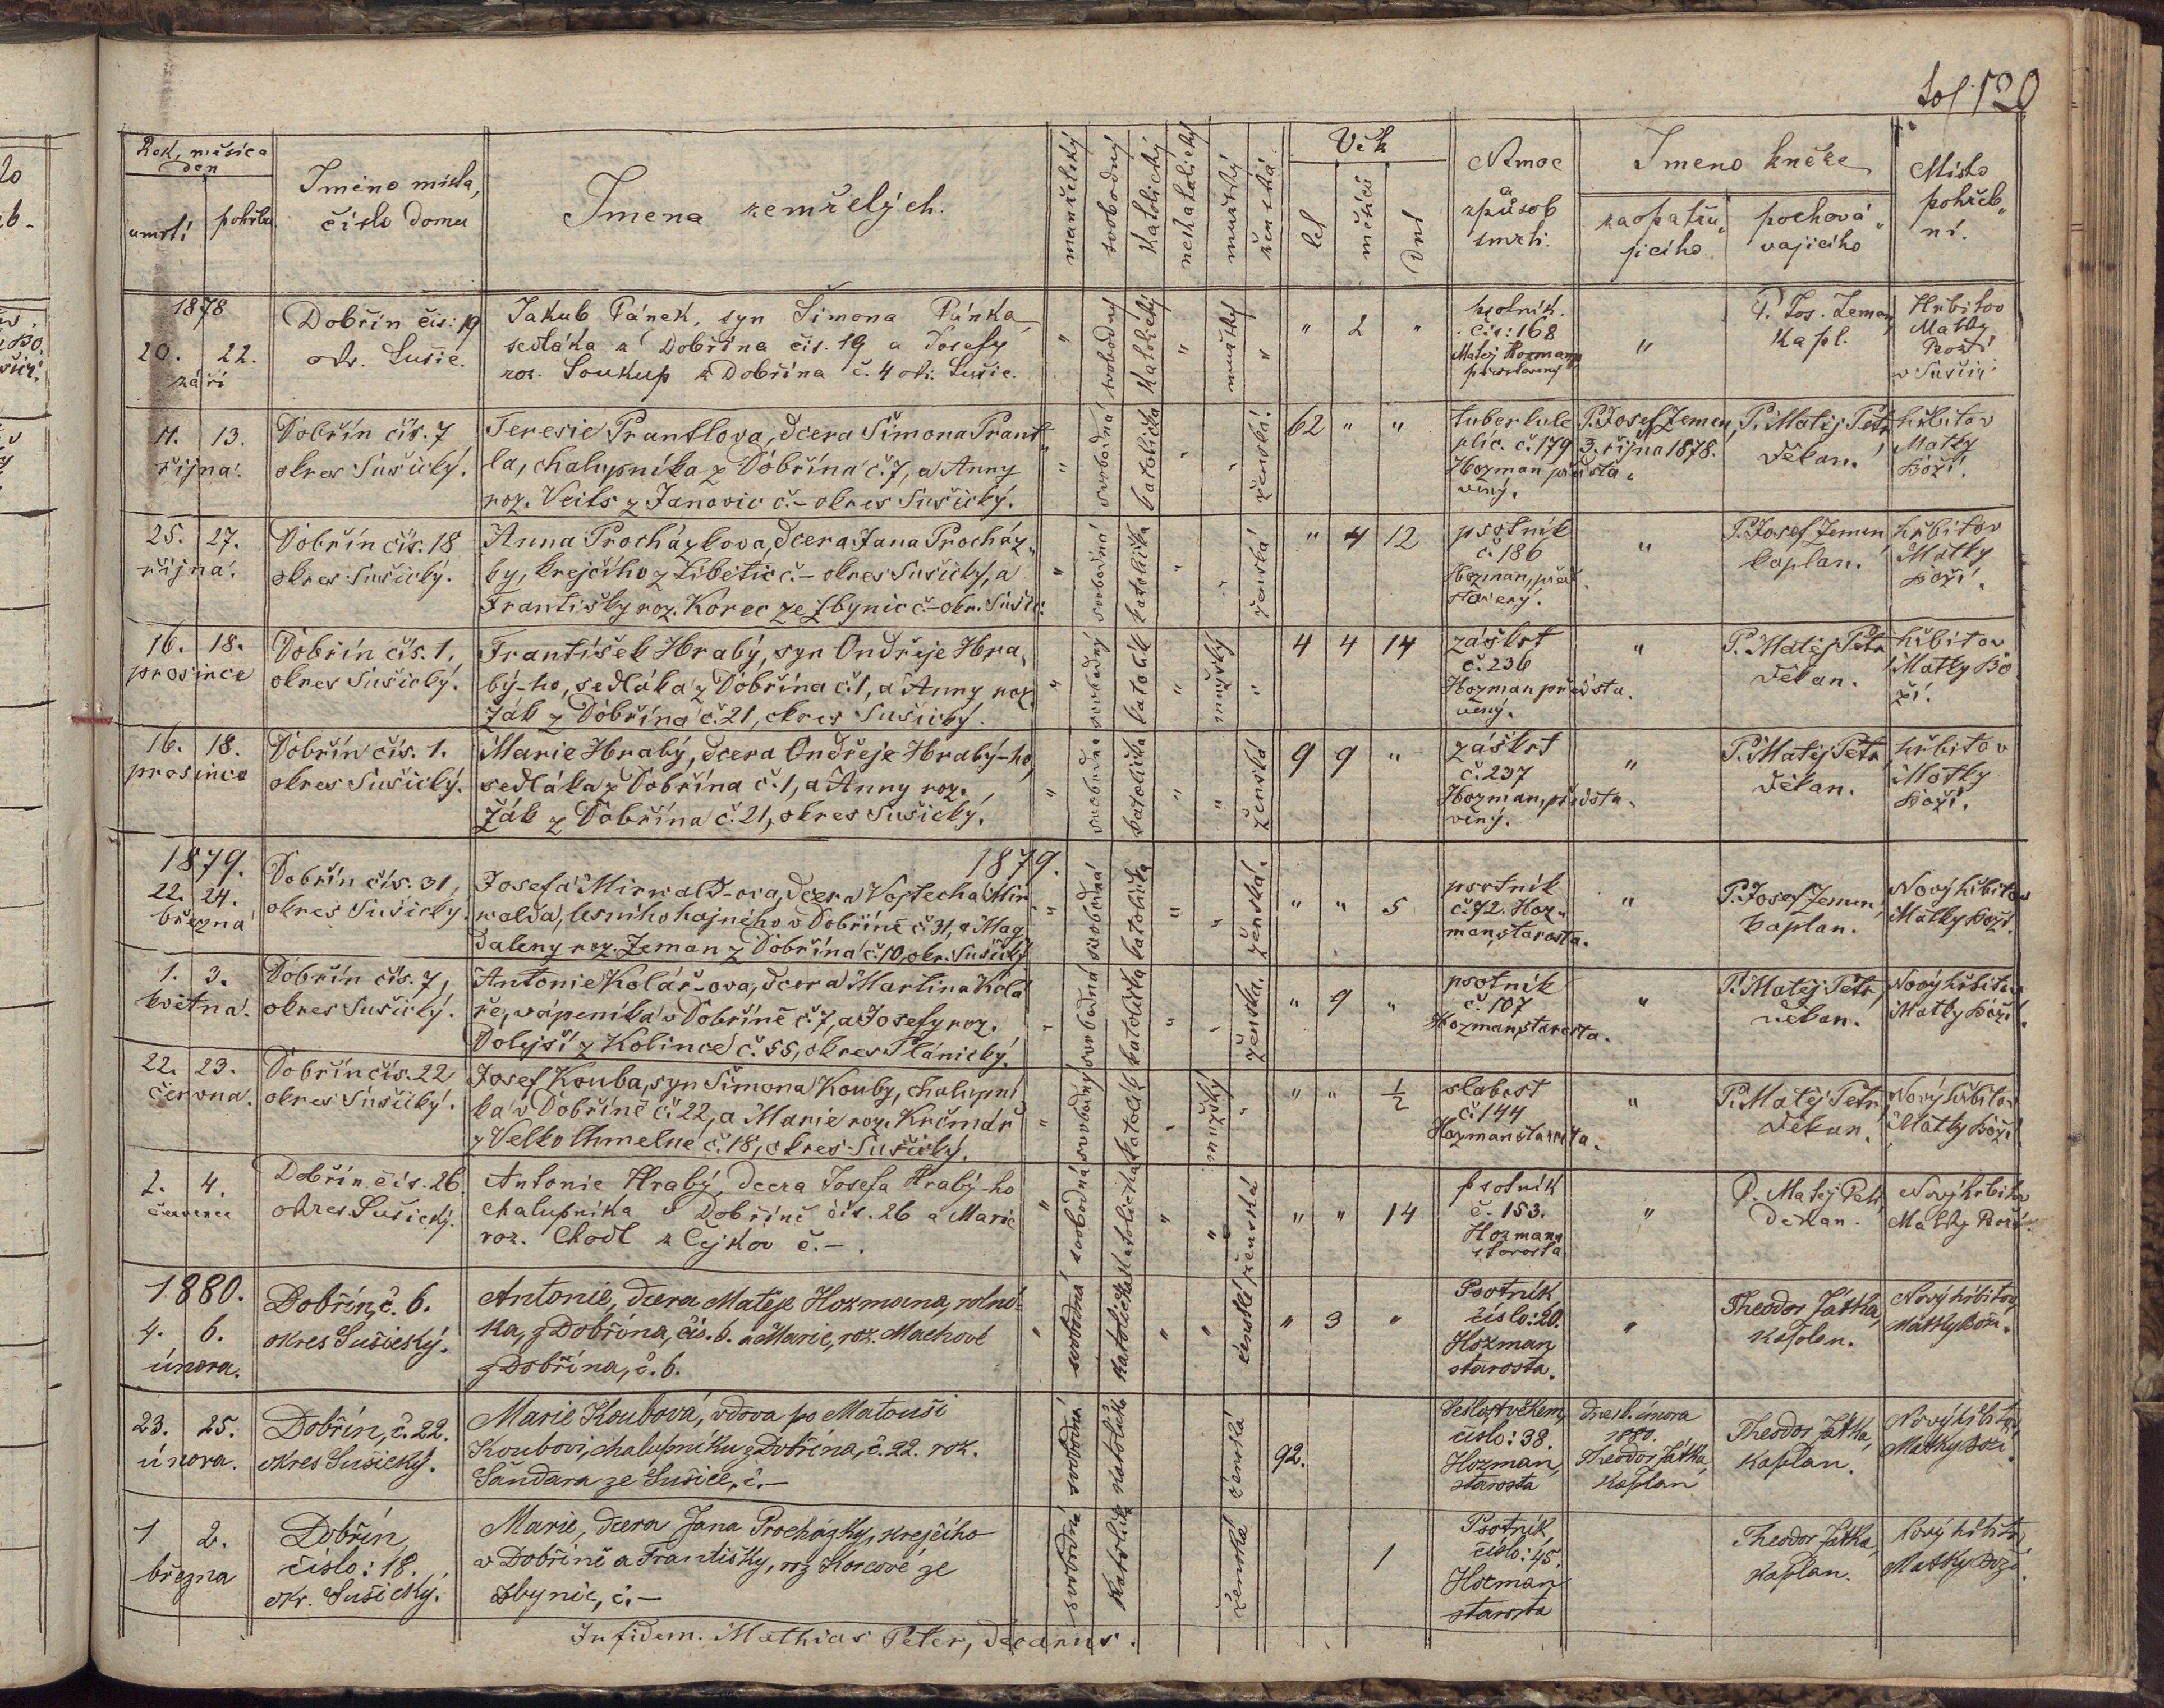 fol. 120
Rok, měsíc a den
umrtí
pohřbu
Jméno místa,
číslo domu
Jmena zemřelých.
manželský
svobodný
Katolický
nekatolický
mužský
ženská
Věk
let
měsíců
dní
Nemoc
a
způsob
smrti.
Jmeno kněze
zaopatřu„
jícího
pochová„
vajícího
Místo
pohřeb„
ní.
1878
20. 22.
září
Dobřín čís: 19
okr. Sušic.
Jakub Pánek, syn Šimona Pánka,
sedláka z Dobřína čís. 19 a Josefy
roz. Soukup z Dobřína č. 4 okr. Sušic.
" svobodný Katolický " mužský "
" 2 "
psotník.
čís: 168
Matěj Hozman
představený
"
P. Jos. Zeman,
Kapl.
Hřbitov
Matky
Boží
v Sušici
11. 13.
října.
Dobřín čís. 7
okres Sušický.
Teresie Prantlova, dcera Šimona Prant
la, chalupníka z Dobřína č. 7, a Anny
roz. Veits z Janovic č.– okres Sušický.
" svobodná katolička " " ženská.
62 " "
tuberkule
plic. č. 179
Hozman předsta„
vený.
P. Josef Zeman,
3. října 1878.
P. Matěj Petr
děkan.
hřbitov
Matky
Boží.
25. 27.
října.
Dobřín čís. 18
okres Sušický.
Anna Procházkova, dcera Jana Procház„
ky, krejčího z Libětic č.– okres Sušický, a
Františky roz. Korec ze Zbynic č.– okr. Sušic.
" svobodná katolička " " ženská
" 4 12
psotník
č. 186
Hozman, před
stavený.
"
P. Josef Zeman,
kaplan.
hřbitov
Matky
Boží.
16. 18.
prosince
Dobřín čís. 1,
okres Sušický.
František Hrabý, syn Ondřeje Hra„
bý-ho, sedláka z Dobřína č. 1, a Anny roz.
Žák z Dobřína č. 21, okres Sušický.
" svobodný katolík " mužský "
4 4 14
záškrt
č. 236
Hozman předsta„
vený.
"
P. Matěj Petr
děkan.
hřbitov
Matky Bo
ží.
16. 18.
prosince
Dobřín čís. 1.
okres Sušický.
Marie Hrabý, dcera Ondřeje Hrabý-ho,
sedláka z Dobřína č. 1, a Anny roz.
Žák z Dobřína č. 21, okres Sušický.
" svobodná katolička " " ženská
9 9 "
záškrt
č. 237
Hozman, předsta„
vený.
"
P. Matěj Petr
děkan.
hřbitov
Matky
Boží.
1879. 1879.
22. 24.
března
Dobřín čís. 31,
okres Sušický.
Josefa Mirwald-ova, dcera Vojtecha Mir
walda, lesního hajného v Dobříně č. 31, a Mag
daleny roz. Zeman z Dobřína č. 10, okr. Sušický
" svobodná katolička " " ženská.
" " 5
psotník
č. 72. Hoz„
man, starosta.
"
P. Josef Zeman,
kaplan.
Nový hřbitov
Matky Boží.
1. 3.
května.
Dobřín čís. 7,
okres Sušický.
Antonie Kolář-ova, dcera Martina Kolá
ře, vápeníka v Dobříně č. 7, a Josefy roz.
Dolejší z Kolince č. 55, okres Plánický.
" svobodná katolička " " ženska.
" 9 "
psotník
č. 107
Hozman, starosta.
"
P. Matěj Petr,
děkan.
Nový hřbitov
Matky Boží.
22. 23.
června.
Dobřín čís. 22
okres Sušický.
Josef Kouba, syn Šimona Kouby, chalupní
ka v Dobříně č. 22, a Marie roz. Krčmář
z Velko Chmelné č. 18, okres Sušický.
" svobodný katolík " mužský "
" " ½
slabost
č. 144
Hozman starosta.
"
P. Matěj Petr
děkan.
Nový hřbitov
Matky Boží.
2. 4.
července
Dobřín čís. 26
okres Sušický.
Antonie Hrabý, dcera Josefa Hrabý-ho
chalupníka v Dobříně čís. 26 a Marie
roz. Chodl z Čejkov č.–.
" svobodná katolička " " ženská
" " 14
psotník
č. 153.
Hozman
starosta
"
P. Matěj Petr,
děkan.
Nový hřbitov
Matky Boží.
1880.
4. 6.
února.
Dobřín, č. 6.
okres Sušický.
Antonie, dcera Matěje Hozmana, rolní-
ka, z Dobřína, čís. 6. a Marie, roz. Machové
z Dobřína, č. 6.
" svobodná Katolička " " ženské
" 3 "
Psotník
číslo: 20.
Hozman
starosta.
"
Theodor Játka,
kaplan.
Nový hřbitov
Matky Boží.
23. 25.
února.
Dobřín, č. 22.
okres Sušický.
Marie Koubová, vdova po Matouši
Koubovi, chalupníku z Dobřína, č. 22. roz.
Šandara ze Sušice, č.–
svobodná katolička ženská
92.
Sešlost věkem,
číslo: 38.
Hozman,
starosta
února
1880.
Theodor Játka,
kaplan
Theodor Játka,
kaplan.
Nový hřbitov
Matky Boží.
1 2.
března
Dobřín,
číslo: 18.
okr. Sušický.
Marie, dcera Jana Procházky, krejčího
v Dobříně a Františky, roz Korcové ze
Zbynic, č.–
svobodná Katolička ženská
1
Psotník,
číslo: 45.
Hozman
starosta
Theodor Játka,
kaplan.
Nový hřbitov
Matky Boží.
In fidem. Mathias Peter, decanus.